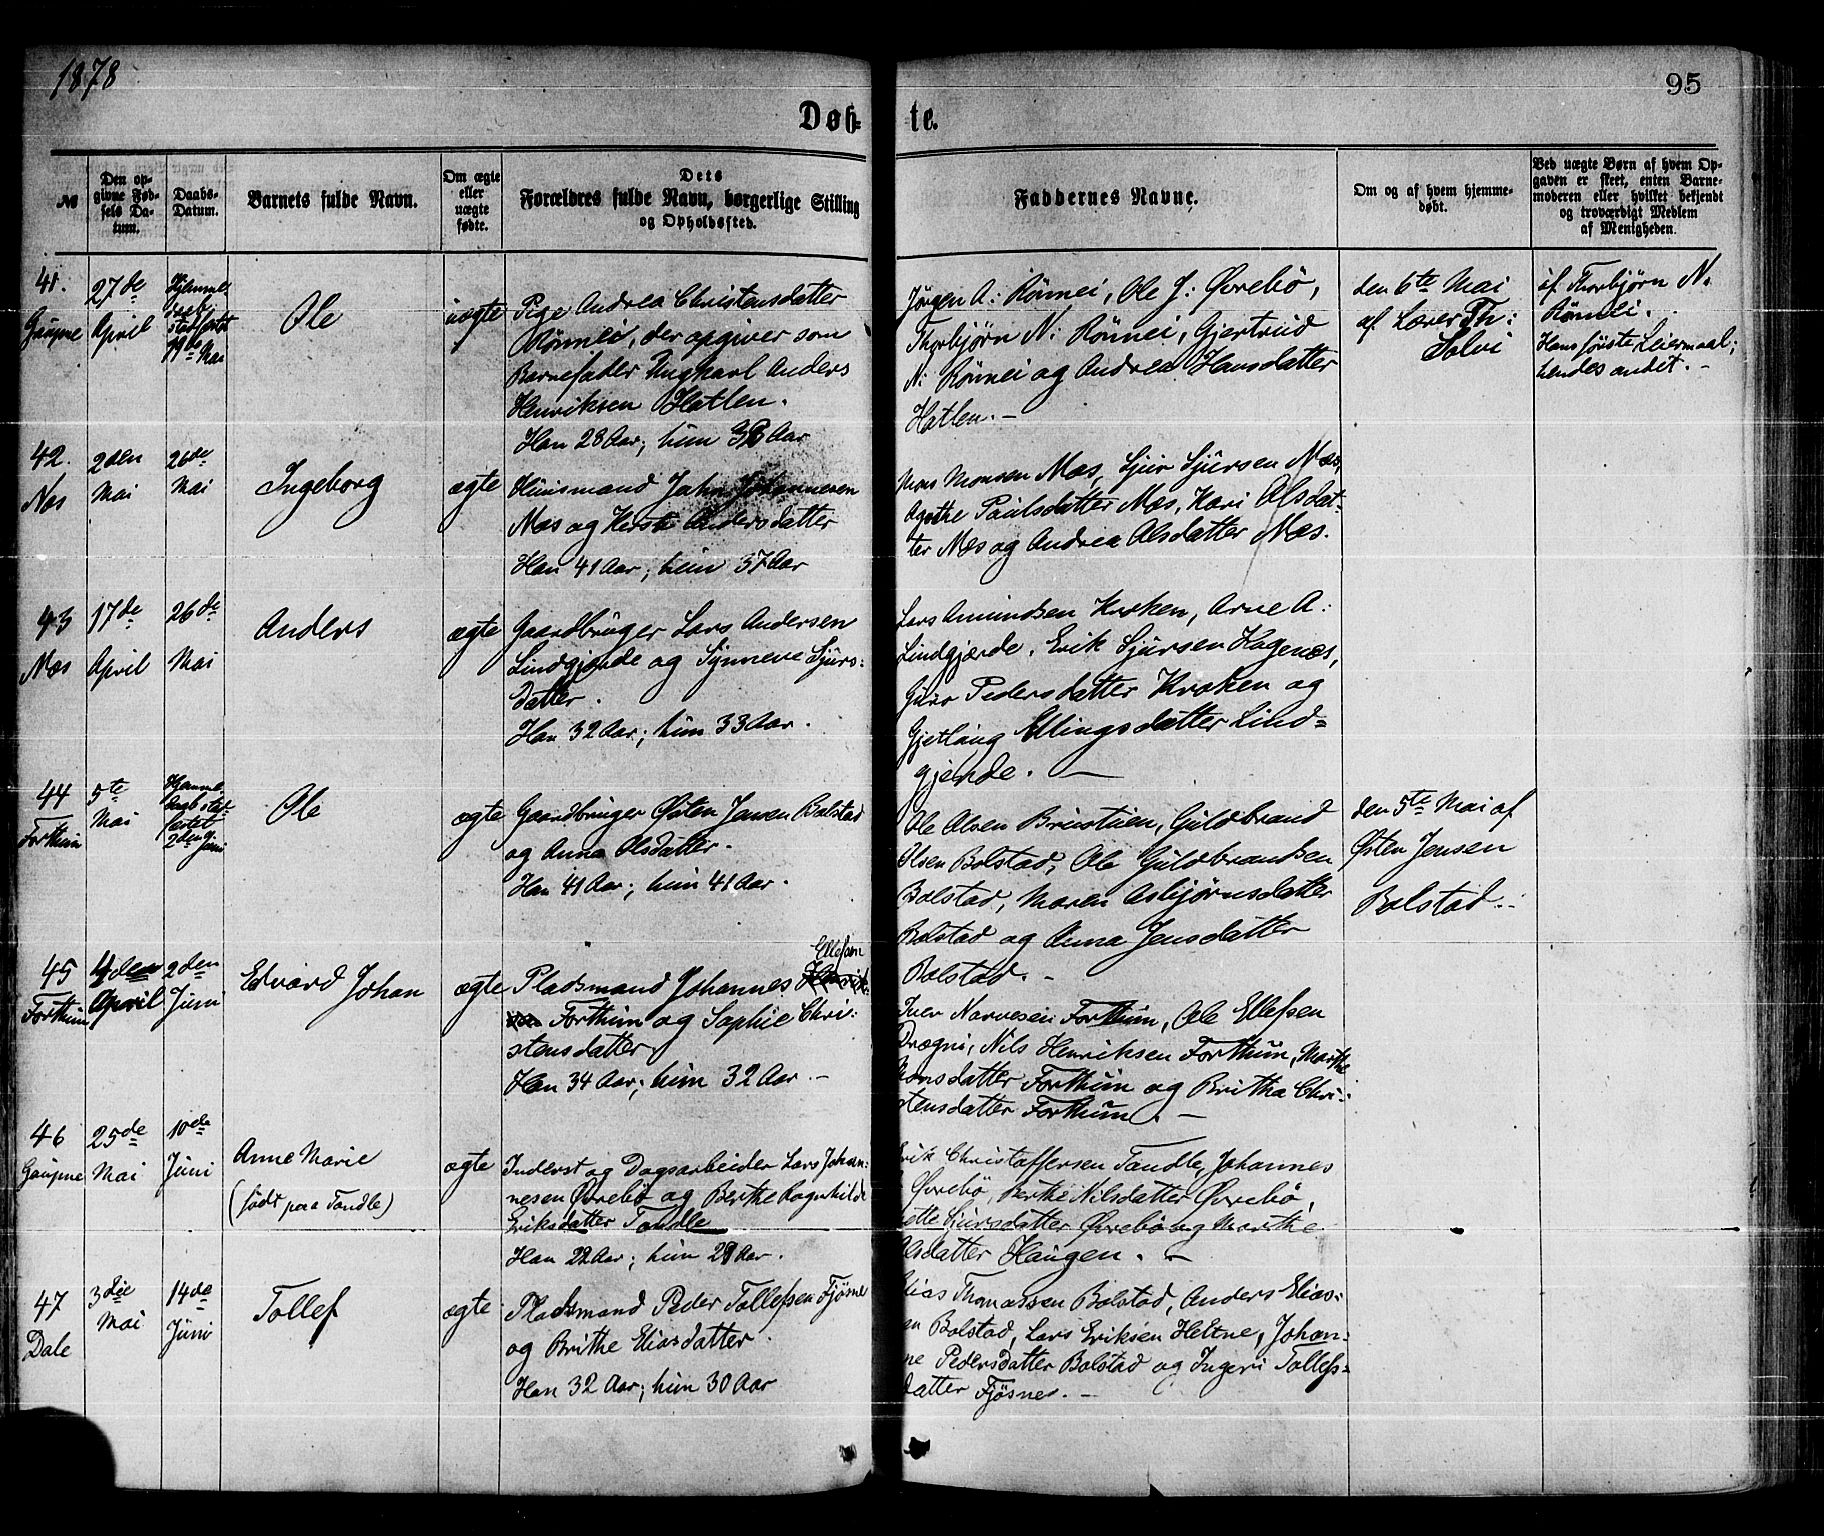 1878
95
Døb- te.
№
Den op-
givne Fød-
sels Da-
tum.
Daabs-
Datum.
Barnets fulde Navn.
Om ægte
eller
uægte
fødte.
Dets
Forældres fulde Navn, borgerlige Stilling
og Opholdssted.
Faddernes Navne.
Om og af hvem hjemme-
døbt.
Ved uægte Børn af hvem Op-
gaven er skeet, enten Barne-
moderen eller hvilket bekjendt
og troværdigt Medlem
af Menigheden.
41.
Gaupne
27de
April
Hjemme
daab
stadfestet
19de Mai
Ole
uægte
Pige Andrea Christensdatter
Rönnei, der opgiver som
Barnefader Ungkarl Anders
Henriksen Hatlen.
Han 28 Aar; hun Aar
Jørgen A: Rönnei, Ole J: Øvrebö,
Thorbjørn N: Rönnei, Gjertrud
N: Rönnei og Andrea Hansdatter
Hatlen. –
den 6te Mai
af Lærer Th:
Solvi
af Thorbjørn N.
Rönnei.
Hans förste Leiermaal;
hendes andet. –
42.
Næs
2den
Mai
26de
Mai
Ingeborg
ægte
Huusmand John Johannesen
Næs og Kersti Andersdatter
Han 41 Aar; hun 37 Aar
Mons Monsen Næs, Sjur Sjursen Næs,
Agathe Paulsdatter Næs, Kari Olsdat-
ter Næs og Andrea Olsdatter Næs.
43
Næs
17de
April
26de
Mai
Anders
ægte
Gaardbruger Lars Andersen
Lindgjerde og Synneve Sjurs-
datter.
Han 32 Aar; hun 33 Aar.
Lars Amundsen Kroken, Arne A:
Lindgjærde, Erik Sjursen Hagenæs,
Guro Pedersdatter Kroken og
Gjertlaug Ellingsdatter Lind-
gjerde. —
44
Forthun
5te
Mai
Hjemme
daab stad-
festet
2den Juni
Ole
ægte
Gaardbruger Østen Jensen Bolstad
og Anna Olsdatter.
Han 41 Aar; hun 41 Aar.
Ole Olsen Brustuen, Guldbrand
Olsen Bolstad, Ole Guldbrandsen
Bolstad, Maren Asbjørnsdatter
Bolstad og Anna Jensdatter
Bolstad. –
den 5te Mai af
Østen Jensen
Bolstad. –
45
Forthun
4den
April
2den
Juni
Edvard Johan
ægte
Ellefsen
Pladsmand Johannes Henrik-
sen Forthun og Sophie Chri-
stensdatter
Han 34 Aar; hun 32 Aar. –
Iver Narvesen Forthun, Ole Ellefsen
Drægni, Nils Henriksen Forthun, Marthe
Monsdatter Forthun og Britha Chri-
stensdatter Forthun. –
46
Gaupne
25de
Mai
10de
Juni
Anne Marie
(født paa Tandle)
ægte
Inderst og Dagsarbeider Lars Johan-
nesen Øvrebö og Berthe Ragnhilde
Eriksdatter Tandle
Han 22 Aar; hun Aar.
Erik Christoffersen Tandle, Johannes
Øvrebö, Berthe Nilsdatter Øvrebö,
Sjursdatter Øvrebö og Marthe
Olsdatter Haugen. –
47
Dale
3die
Mai
14de
Juni
Tollef
ægte
Pladsmand Peder Tollefsen Fjøsne
og Brithe Eliasdatter.
Han 32 Aar; hun 30 Aar
Elias Thomassen Bolstad, Anders Elias-
sen Bolstad, Lars Eriksen Heltne, Johan-
ne Pedersdatter Bolstad og Ingeri Tollefs-
datter Fjösne. –